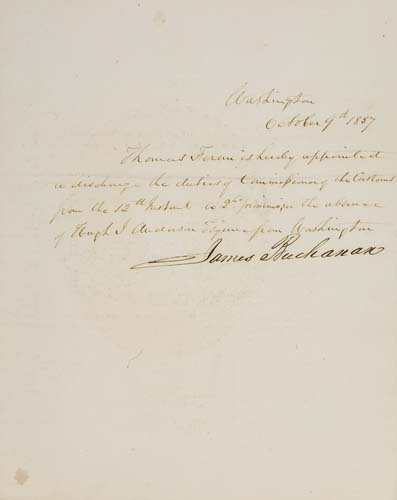 Washington
October 9th 1857
Thomas Feran is hereby appointed
to discharge the duties of Commissioner of the Customs
from the 12th Instant to 2d proximo in the absence
of Hugh J Anderson Esquire from Washington
James Buchanan